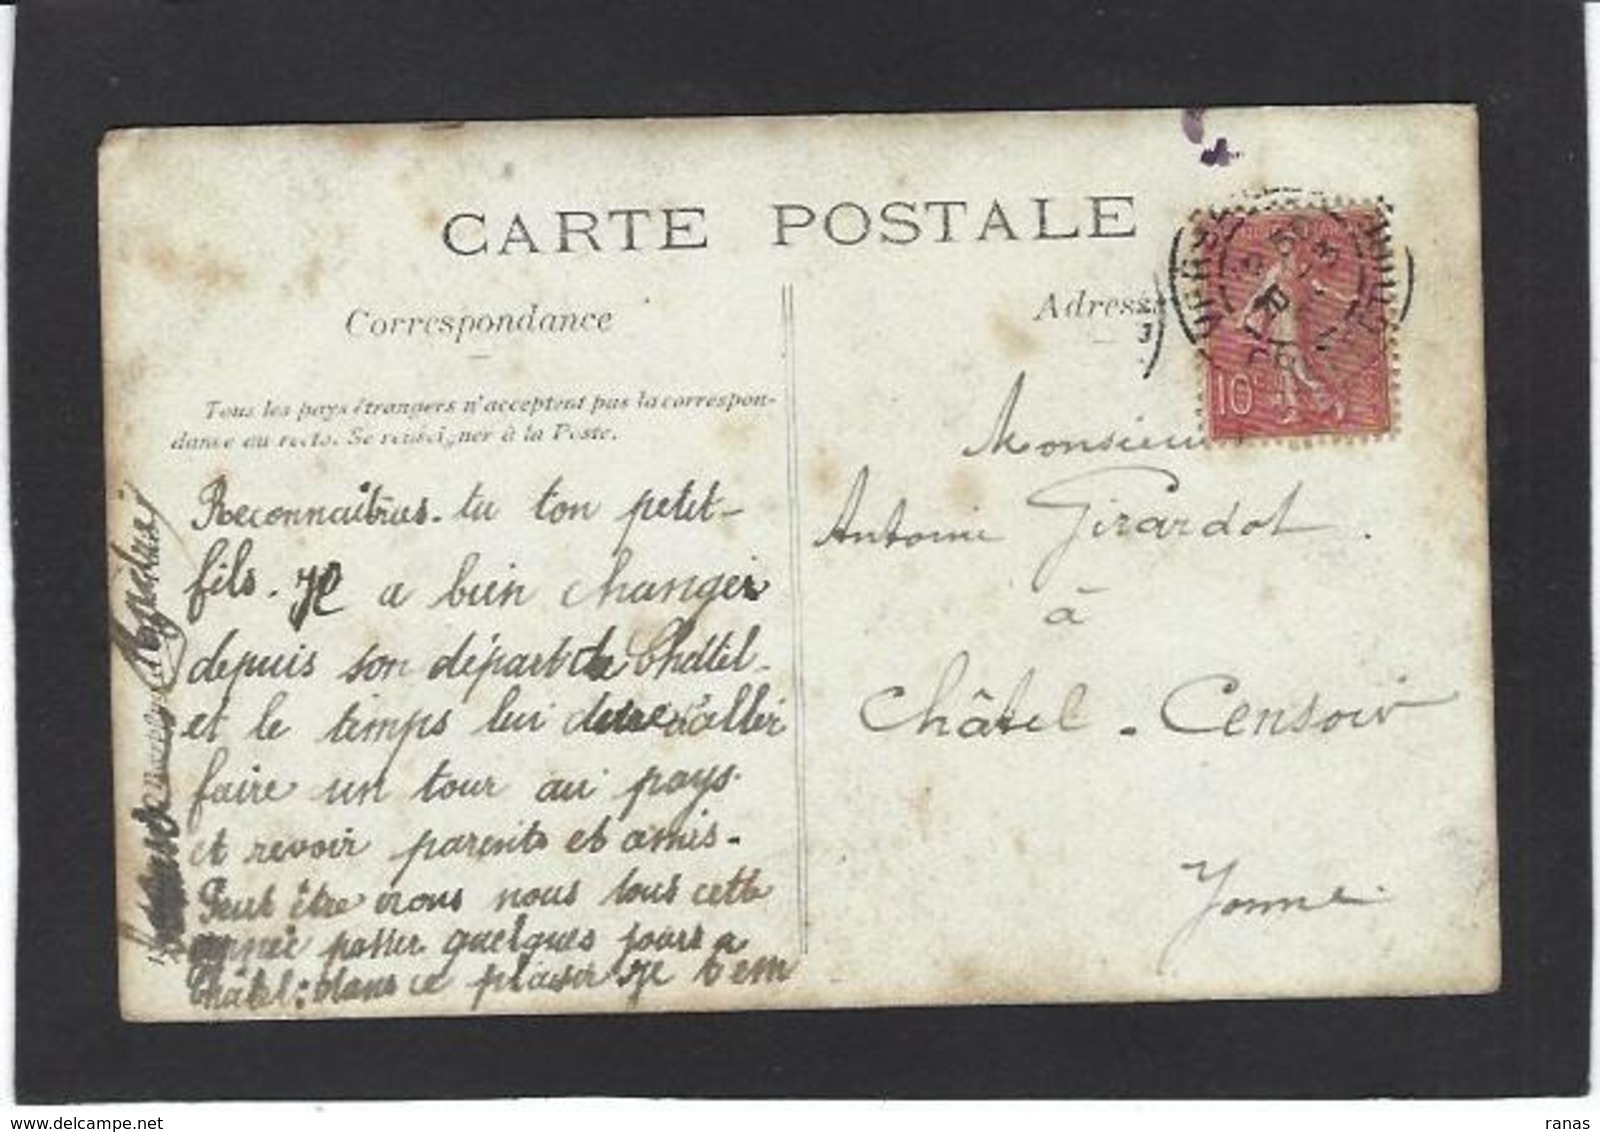 CARTE POSTALE
Correspondance
Adresse
Tous les pays étrangers n'acceptent pas la correspon-
dance au recto. Se renseigner à la Poste.
10
Monsieur
Antoine Girardot.
à
Châtel-Censoir
Yonne
Reconnaîtras-tu ton petit-
fils. Il a bien changer
depuis son départ de Châtel-
et le temps lui dure d'aller
faire un tour au pays
et revoir parents et amis-
Peut être irons nous tous cette
année passer quelques jours a
Châtel: dans ce plaisir je t'em
ranas